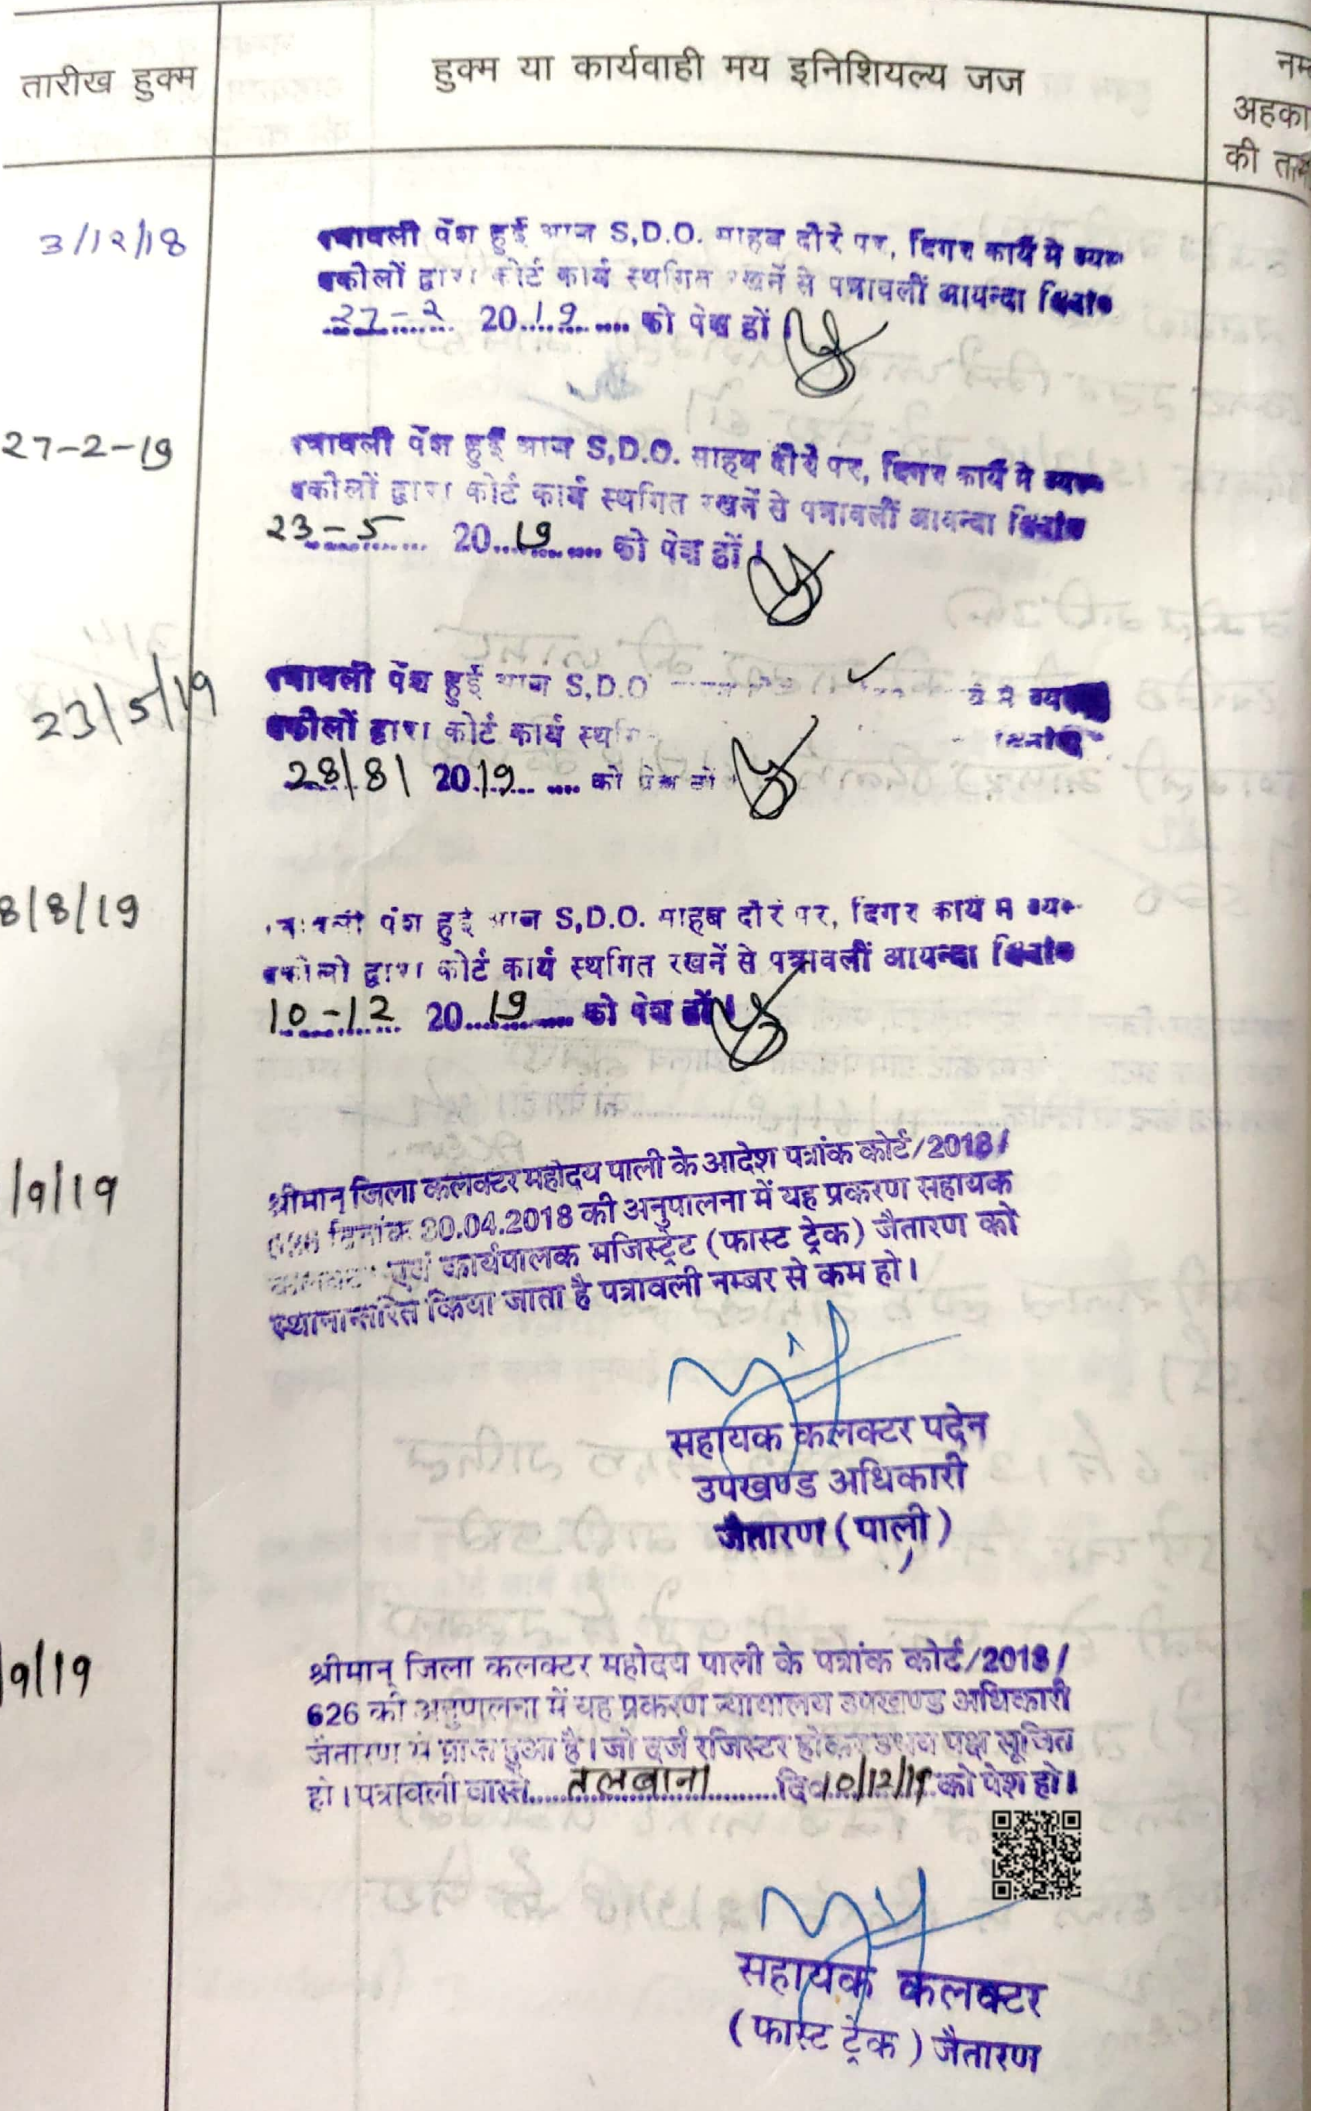 तारीख हुक्म
हुक्म या कार्यवाही मय इनिशियल्य जज
अहका
की
3/12/18
पत्रावली पेंश हुई आज S,D.O. साहब दौरे पर, दिगर कार्ये मे व्यस्त
वकीलों द्वारा कोर्ट कार्य स्थगित रखनें से पत्रावलीं आयन्दा दिनांक
27-2 2019 को पेश हों
27-2-19
पत्रावली पेंश हुई आज S,D.O. साहब दौरे पर, दिगर कार्ये मे व्यस्त
वकीलों द्वारा कोर्ट कार्य स्थगित रखनें से पत्रावलीं आयन्दा दिनांक
23-5 2019 को पेश हों।
23/5/19
पत्रावली पेंश हुई आज S,D.O
वकीलों द्वारा कोर्ट कार्य दिनांक
28/8/ 2019 को पेश हों
8/8/19
पेंश हुई आज S,D.O. साहब दौरे पर, दिगर कार्य मे
वकीलो द्वारा कोर्ट कार्य स्थगित रखनें से पत्रावलीं आयन्दा दिनांक
10-12 2019 को पेश हों।
/9/19
श्रीमान् जिला कलक्टर महोदय पाली के आदेश पत्रांक कोर्ट/2018/
दिनांक 20.04.2018 की अनुपालना में यह प्रकरण सहायक
कलक्टर एवं कार्यपालक मजिस्ट्रेट (फास्ट ट्रेक) जैतारण को
स्थानान्तरित किया जाता है पत्रावली नम्बर से कम हो।
सहायक कलक्टर पदेन
उपखण्ड अधिकारी
जैतारण (पाली)
9/19
श्रीमान् जिला कलक्टर महोदय पाली के पत्रांक कोर्ट/2018/
626 की अनुपालना में यह प्रकरण न्यायालय उपखण्ड अधिकारी
जैतारण से प्राप्त हुआ है। जो दर्ज रजिस्टर होकर उभय पक्ष सूचित
हो। पत्रावली वास्ते तलबाना दि. 10/12/19 को पेश हो।
सहायक कलक्टर
(फास्ट ट्रेक) जैतारण